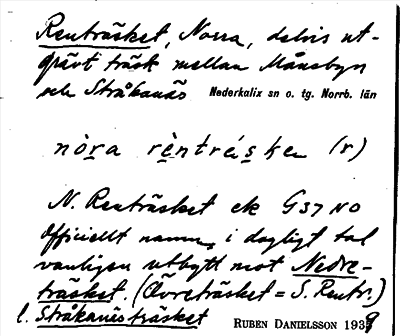 Renträsket, Norra, delvis ut-
grävt träsk mellan Månsbyn
och Stråkanäs Nederkalix sn o. tg. Norrb. län
nòra rènträ́ske (r)
N. Renträsket ek G37 NO
Officiellt namn, i dagligt tal
vanligen utbytt mot Nedre-
träsket. (Övreträsket = S. Rentr.)
l. Stråkanästräsket RUBEN DANIELSSON 1938